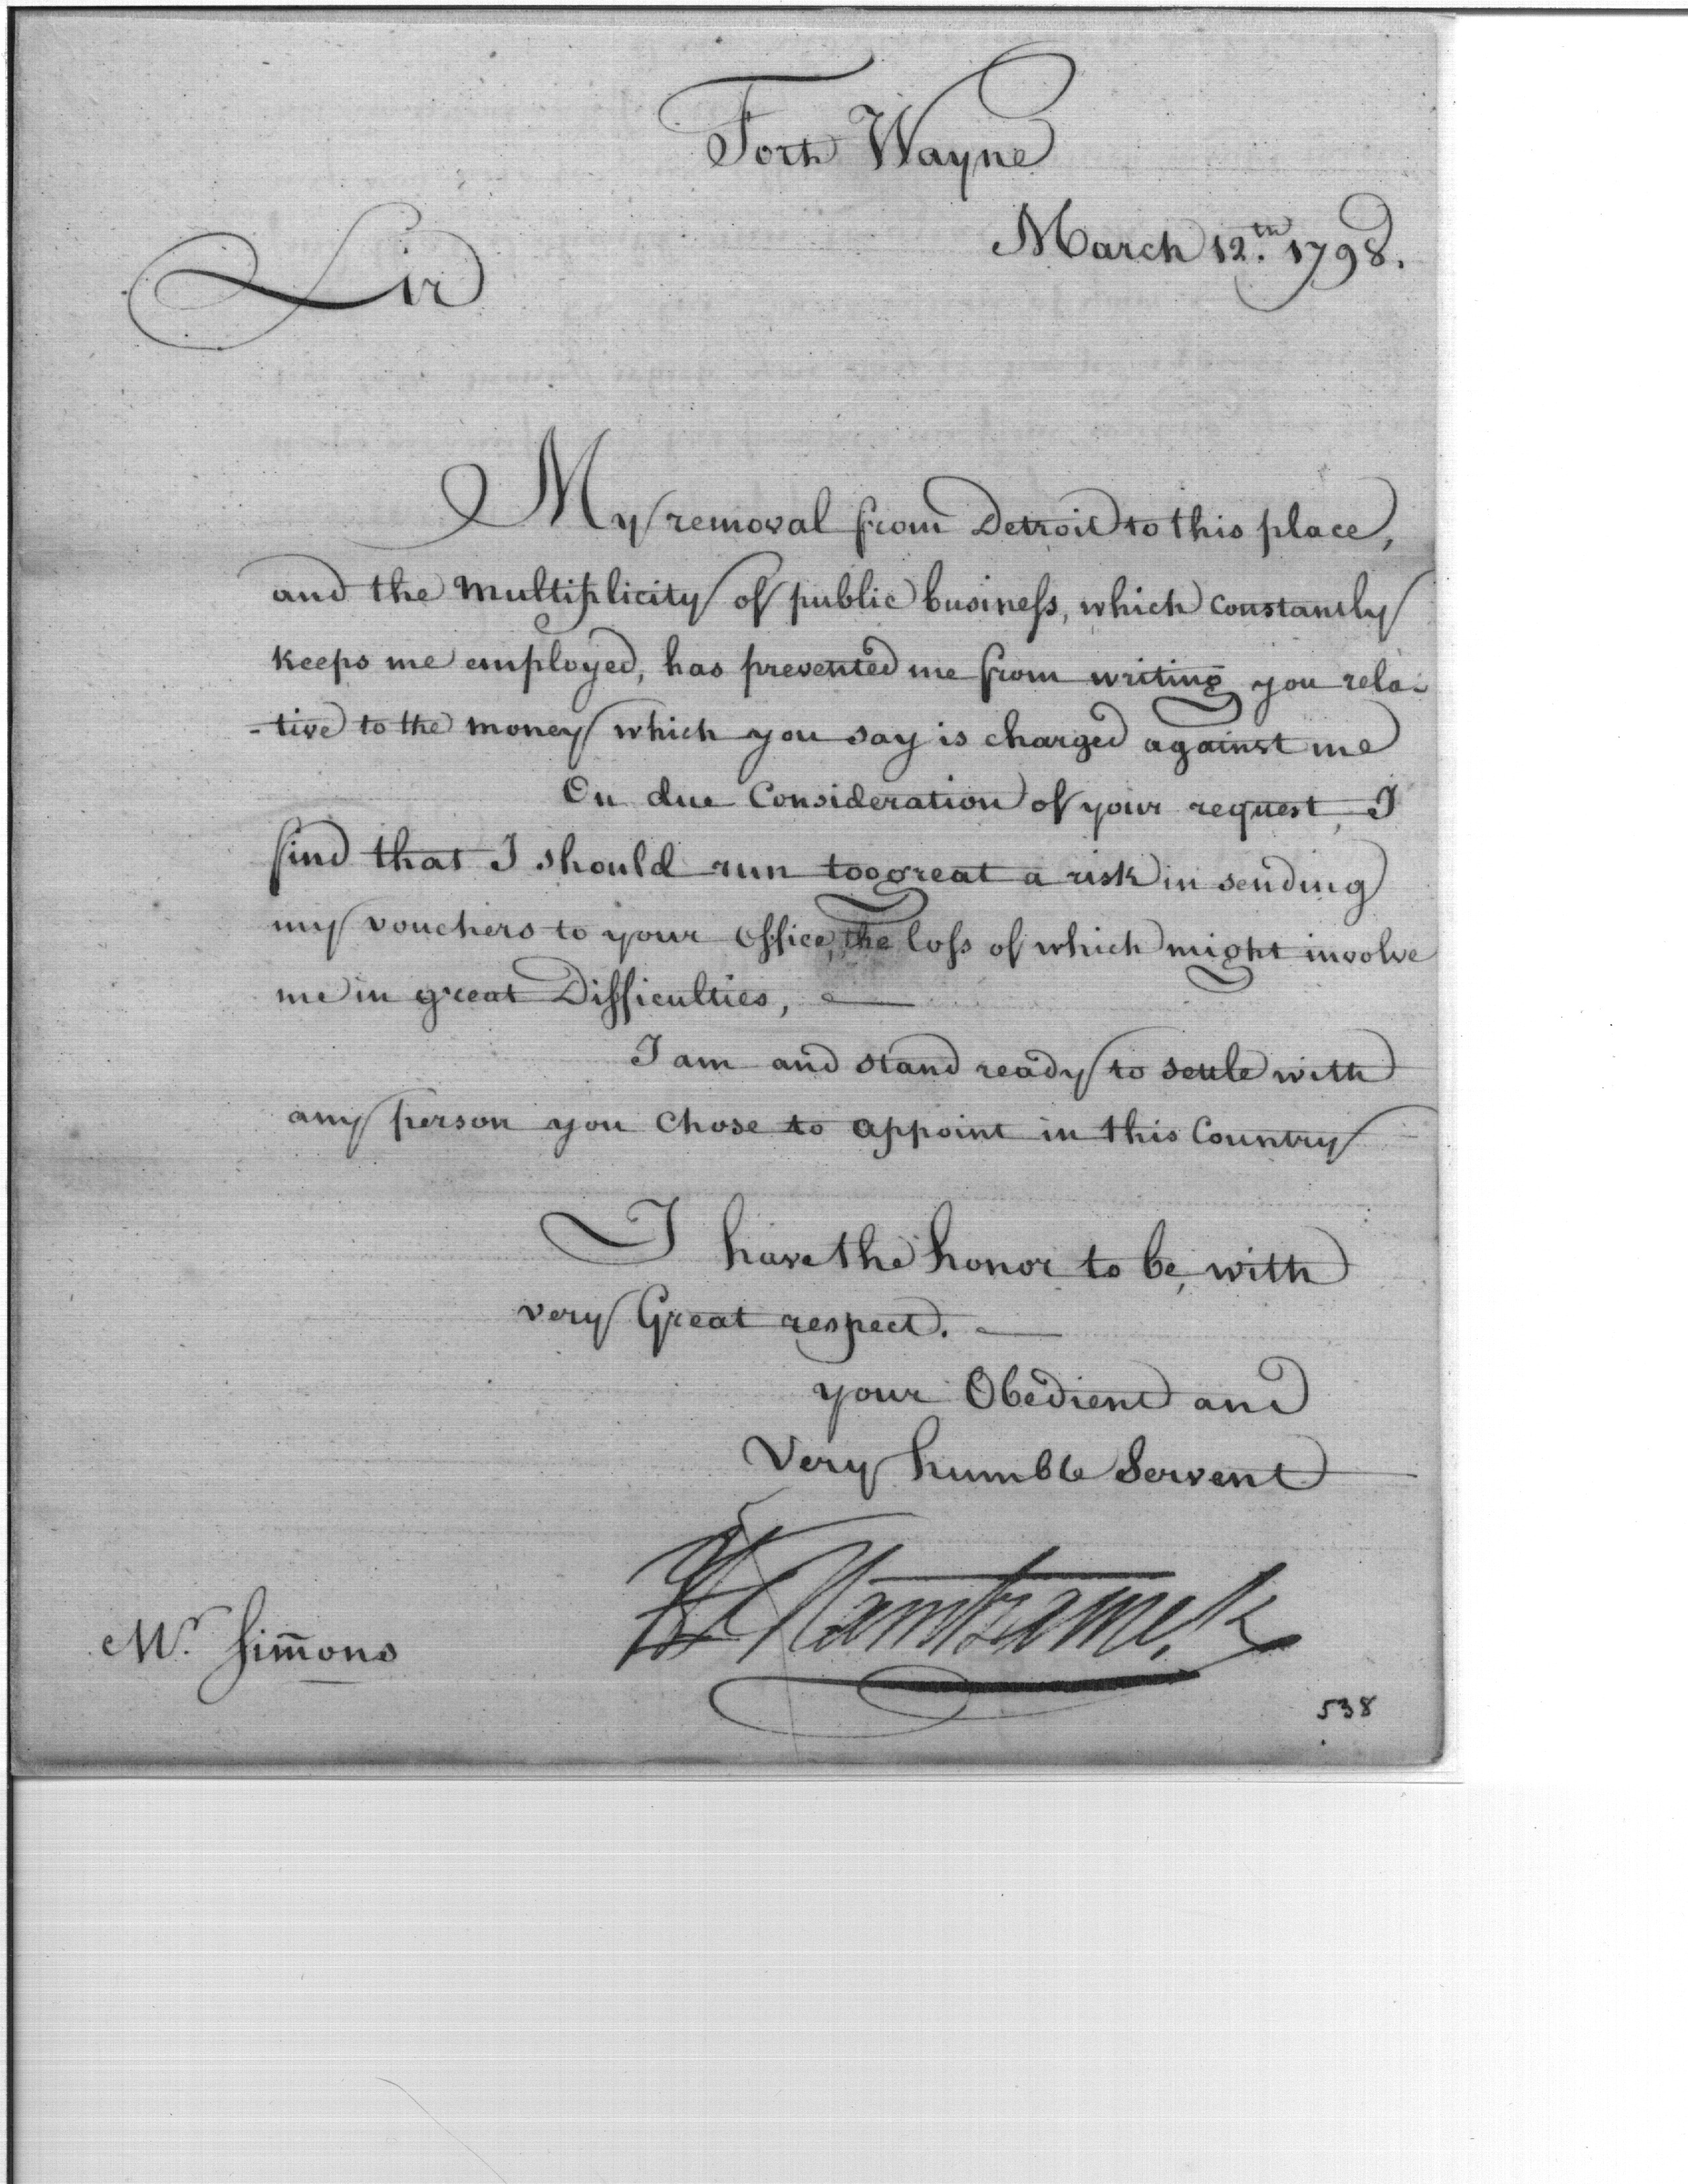 Fort Wayne
March 12.th 1798.
Sir
My removal from Detroit to this place,
and the multiplicity of public business, which constantly
keeps me employed, has prevented me from writing you rela-
-tive to the money which you say is charged against me
On due Consideration of your request, I
find that I should run too great a risk in sending
my vouchers to your office, the loss of which might involve
me in great Difficulties,
I am and stand ready to settle with
any person you Chose to appoint in this Country
I have the honor to be, with
very Great respect.
your Obedient and
Very humble Servent
Hamtramck
Mr. Sim̄ons
538